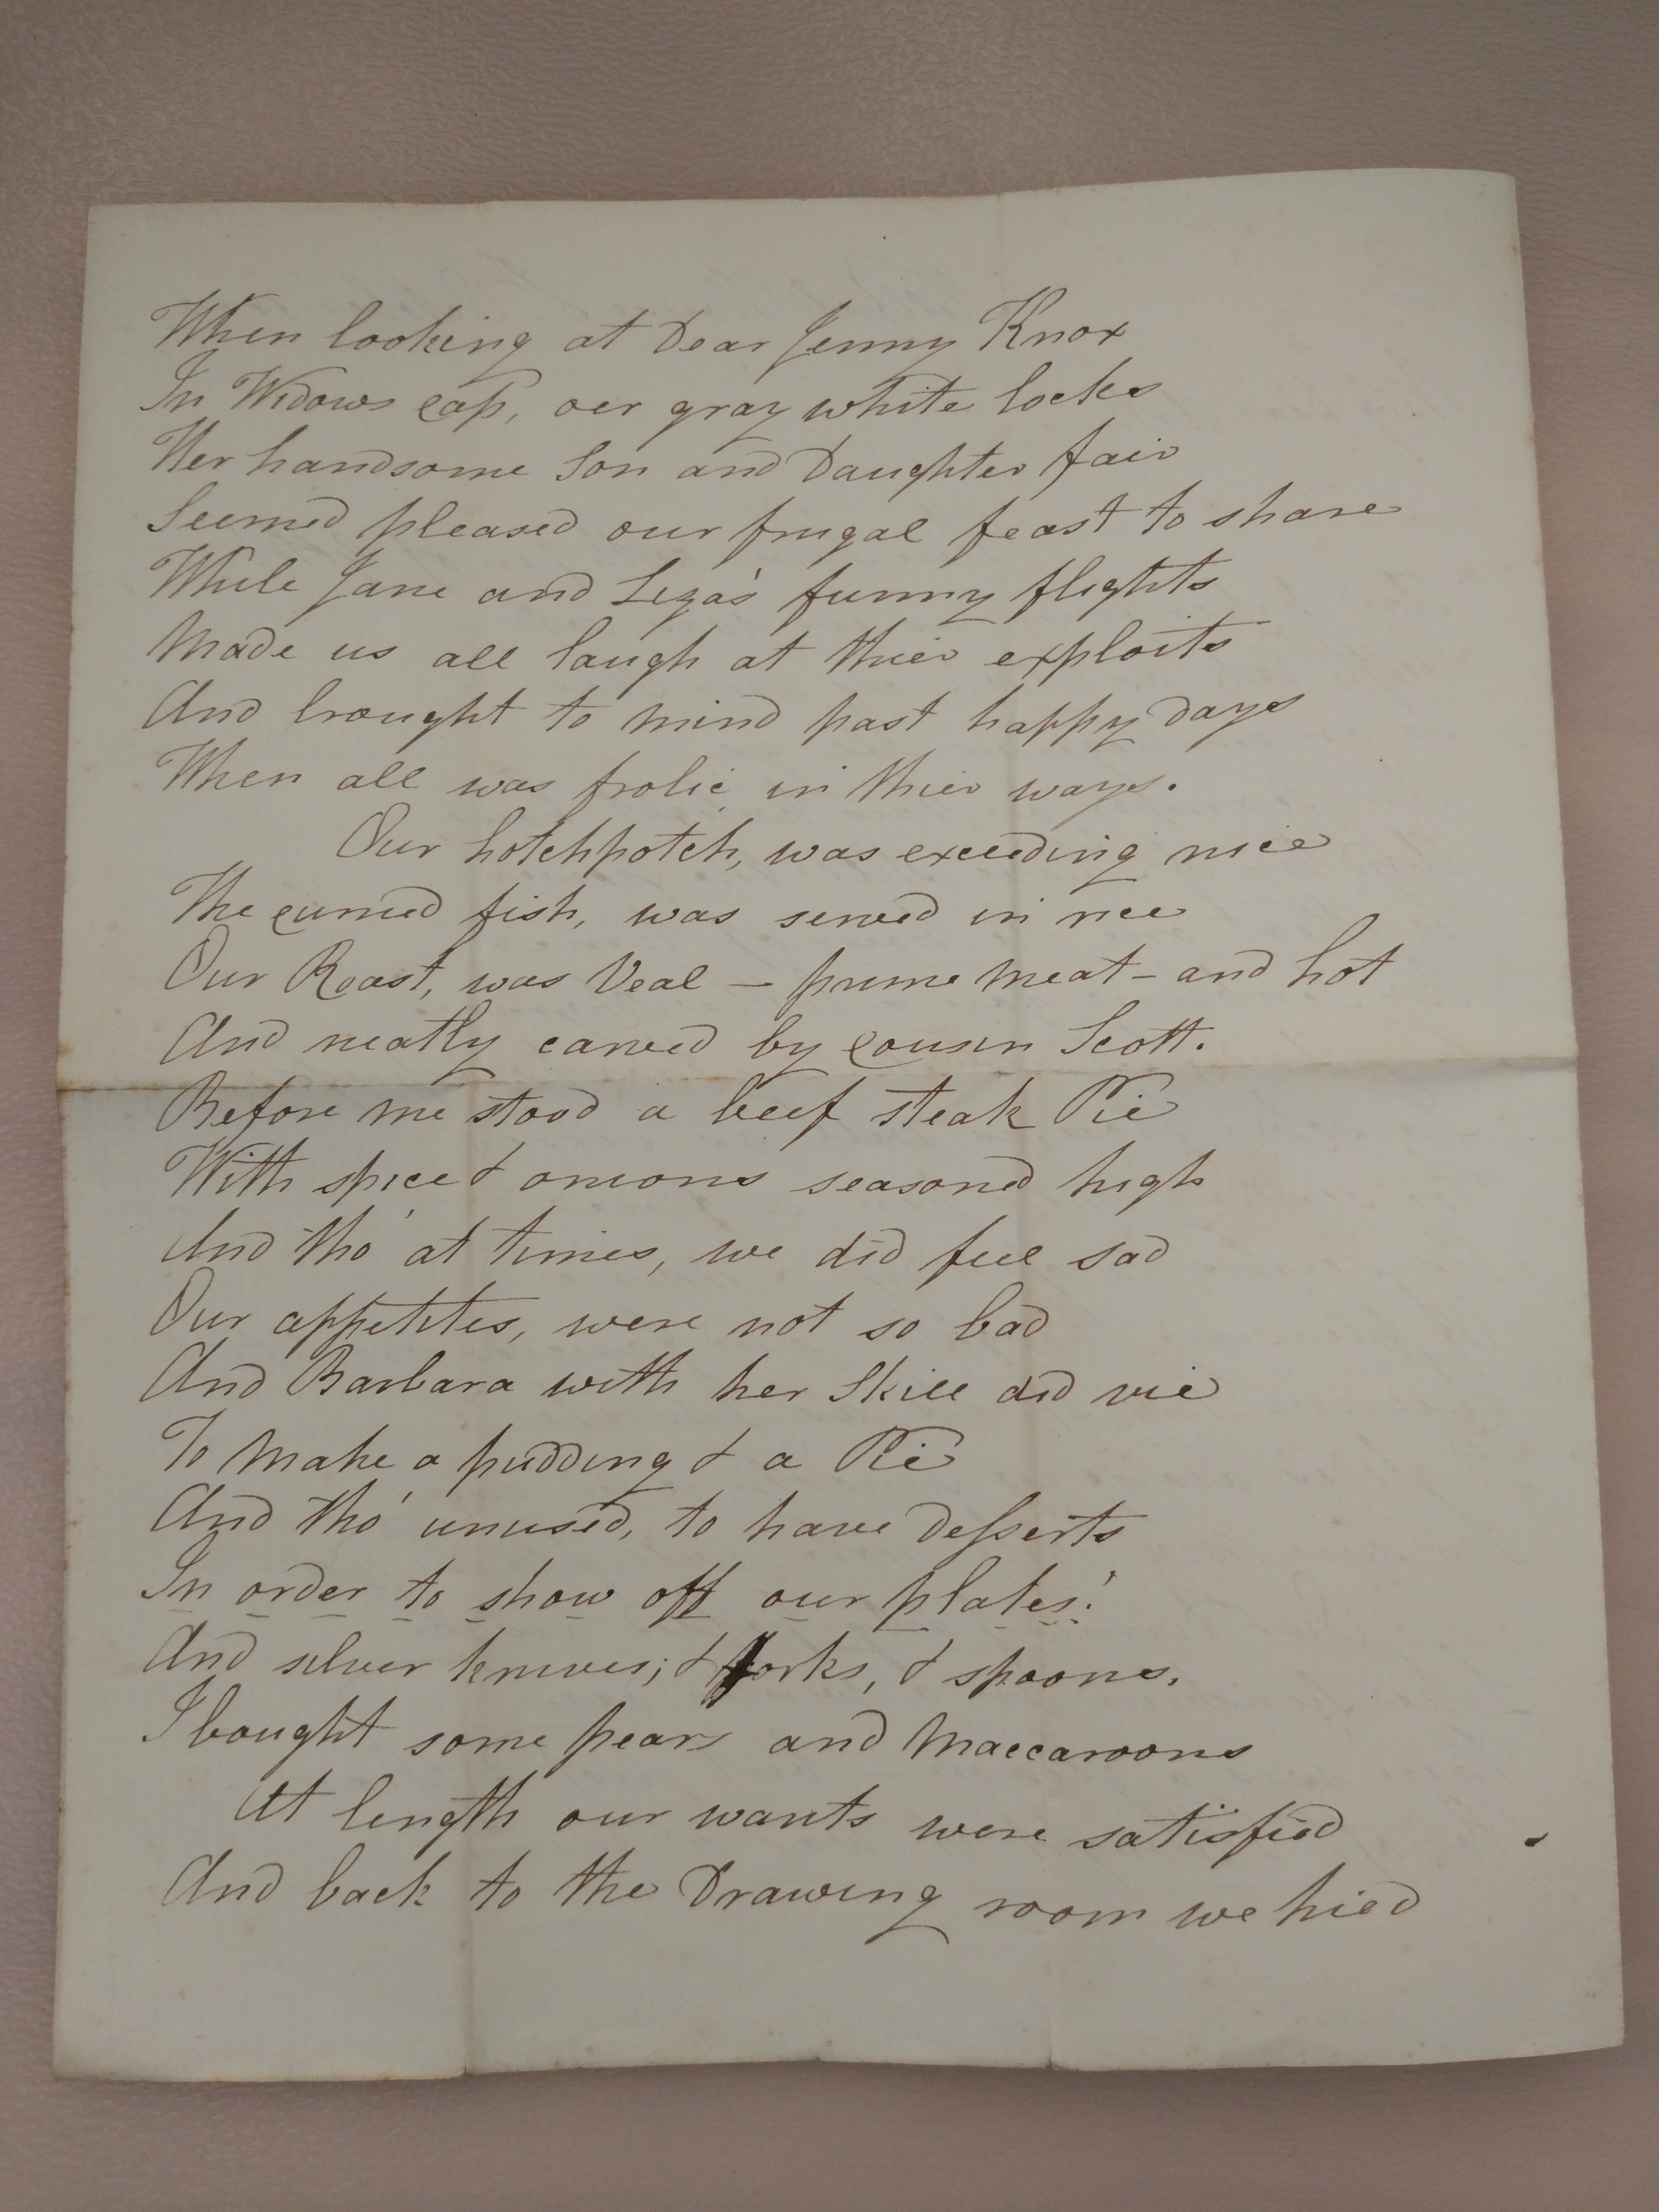 When looking at Dear Jenny Knox
In Widows Cap, oer gray white locks
Her handsome Son and Daughter fair
Seemed pleased our frugal feast to share
While Jane and Liza's funny flights
Made us all laugh at thier exploits
And brought to mind past happy days
When all was frolic in thier ways.
Our hotchpotch, was exceeding nice
The curried fish, was served in rice
Our Roast, was Veal — prime meat – and hot
And neatly carved by Cousin Scott.
Before me stood a beef steak Pie
With spice & onions seasoned high
And tho' at times, we did feel sad
Our appetites, were not so bad
And Barbara with her Skill did vie
To make a pudding & a Pie
And tho' unused, to have desserts
In order to show off our plates!
And silver knives; & forks, & spoons,
I bought some pears and Maccaroons
At length our wants were satisfied
And back to the Drawing room we hied